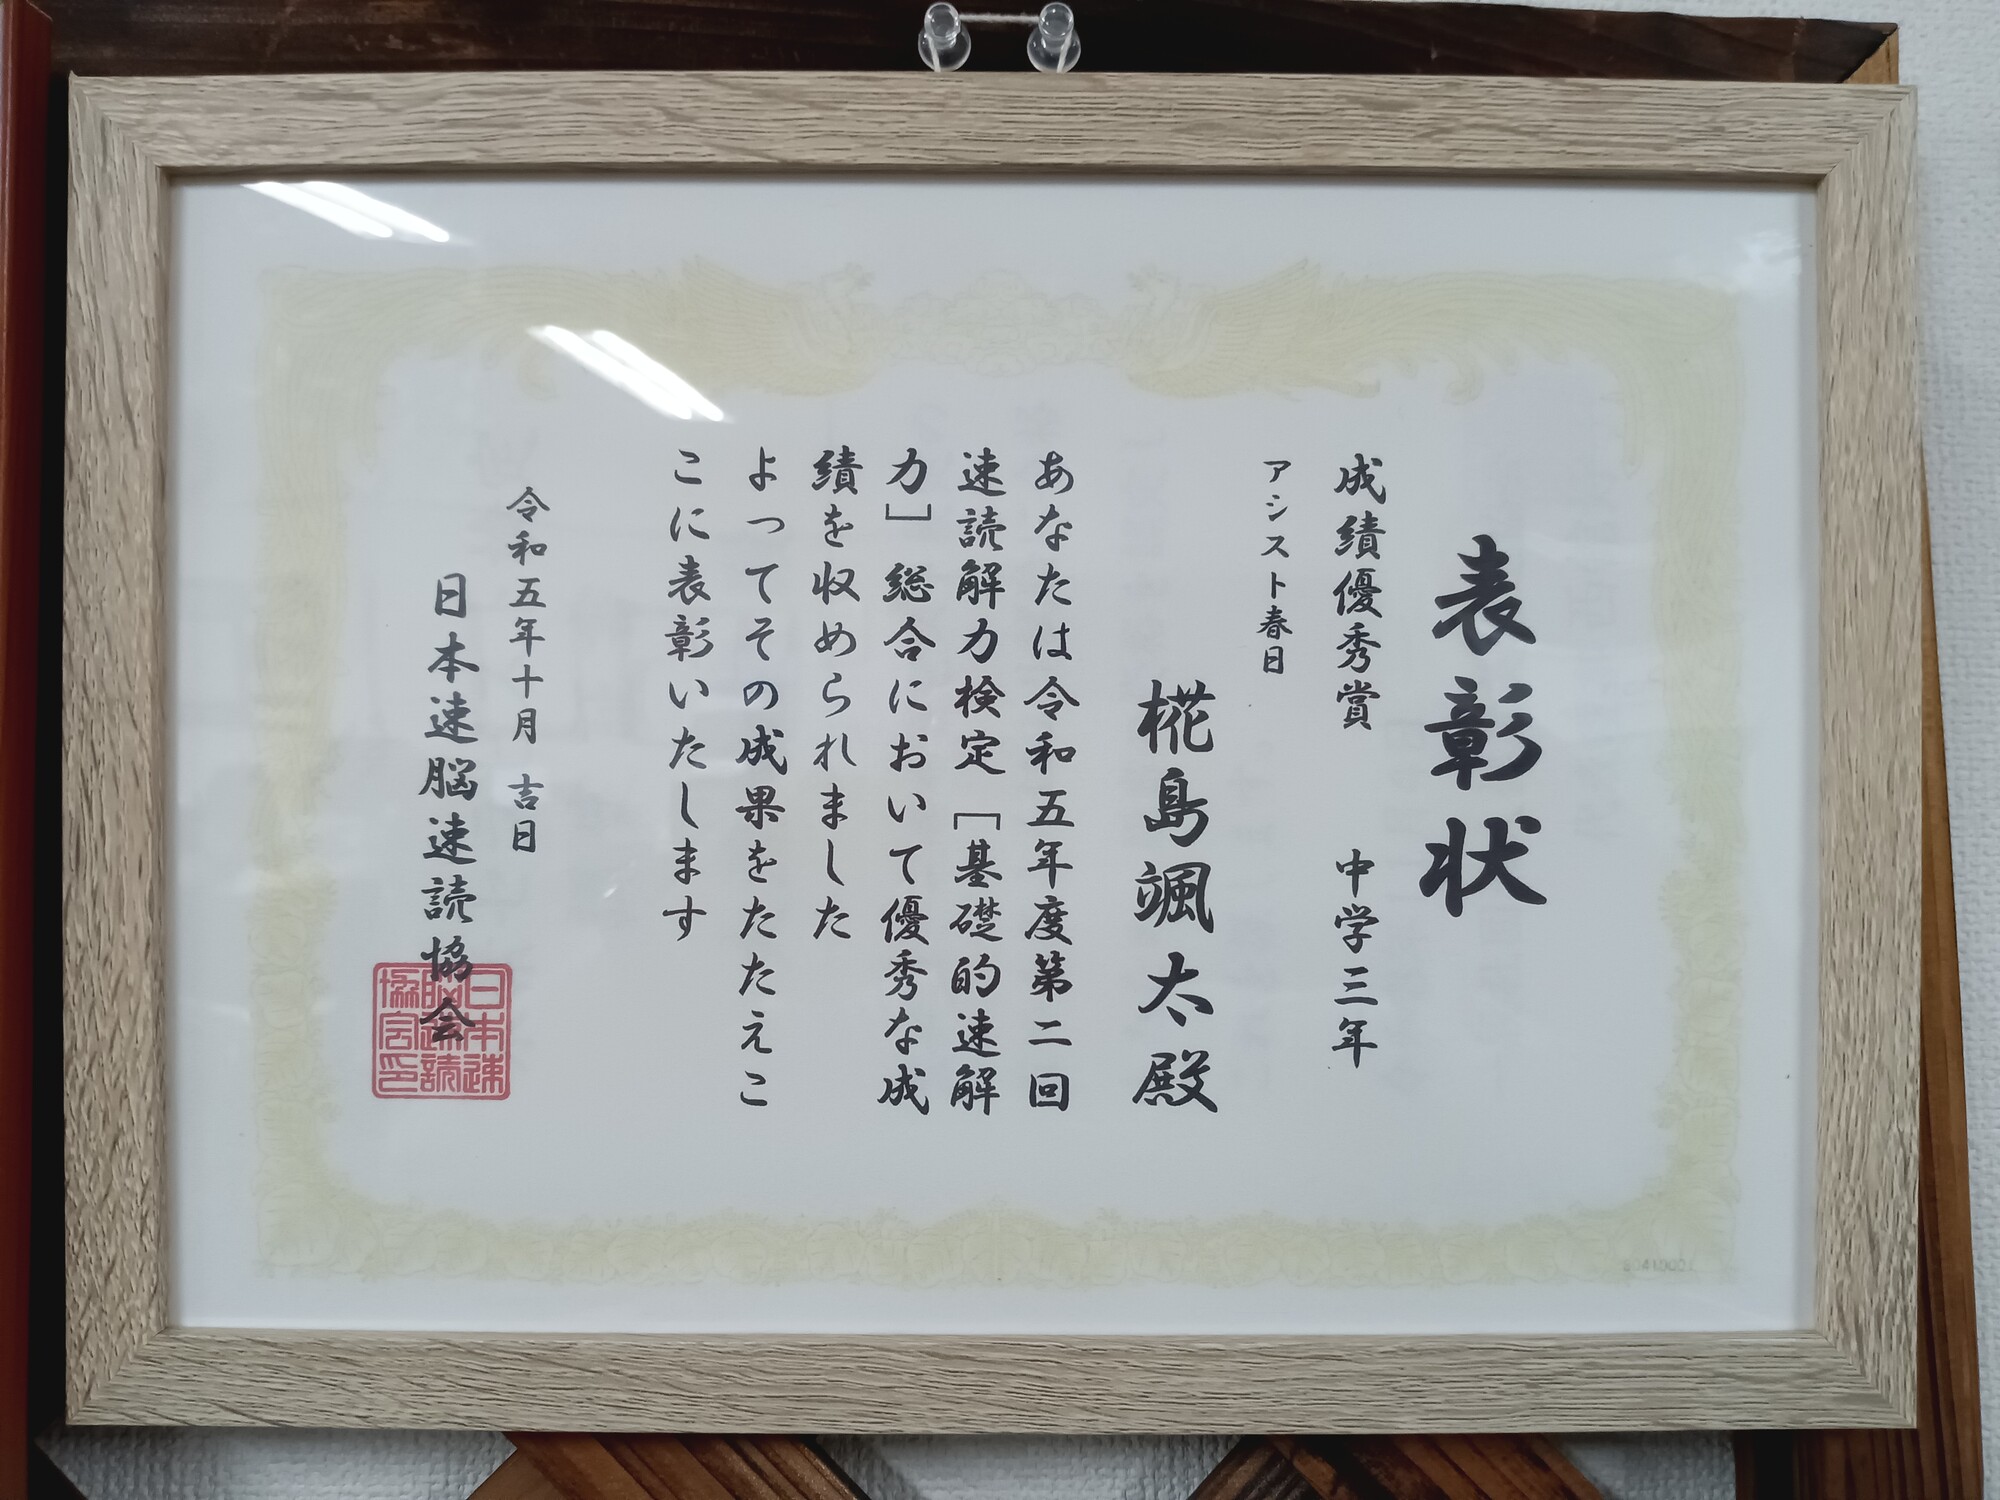 表彰状
成績優秀賞　中学三年
アシスト春日
椛島颯太殿
あなたは令和五年度第二回
速読解力検定［基礎的速解
力］総合において優秀な成
績を収められました
よってその成果をたたえこ
こに表彰いたします
令和五年十月　吉日
日本速脳速読協会
日本速
脳速読
協会印